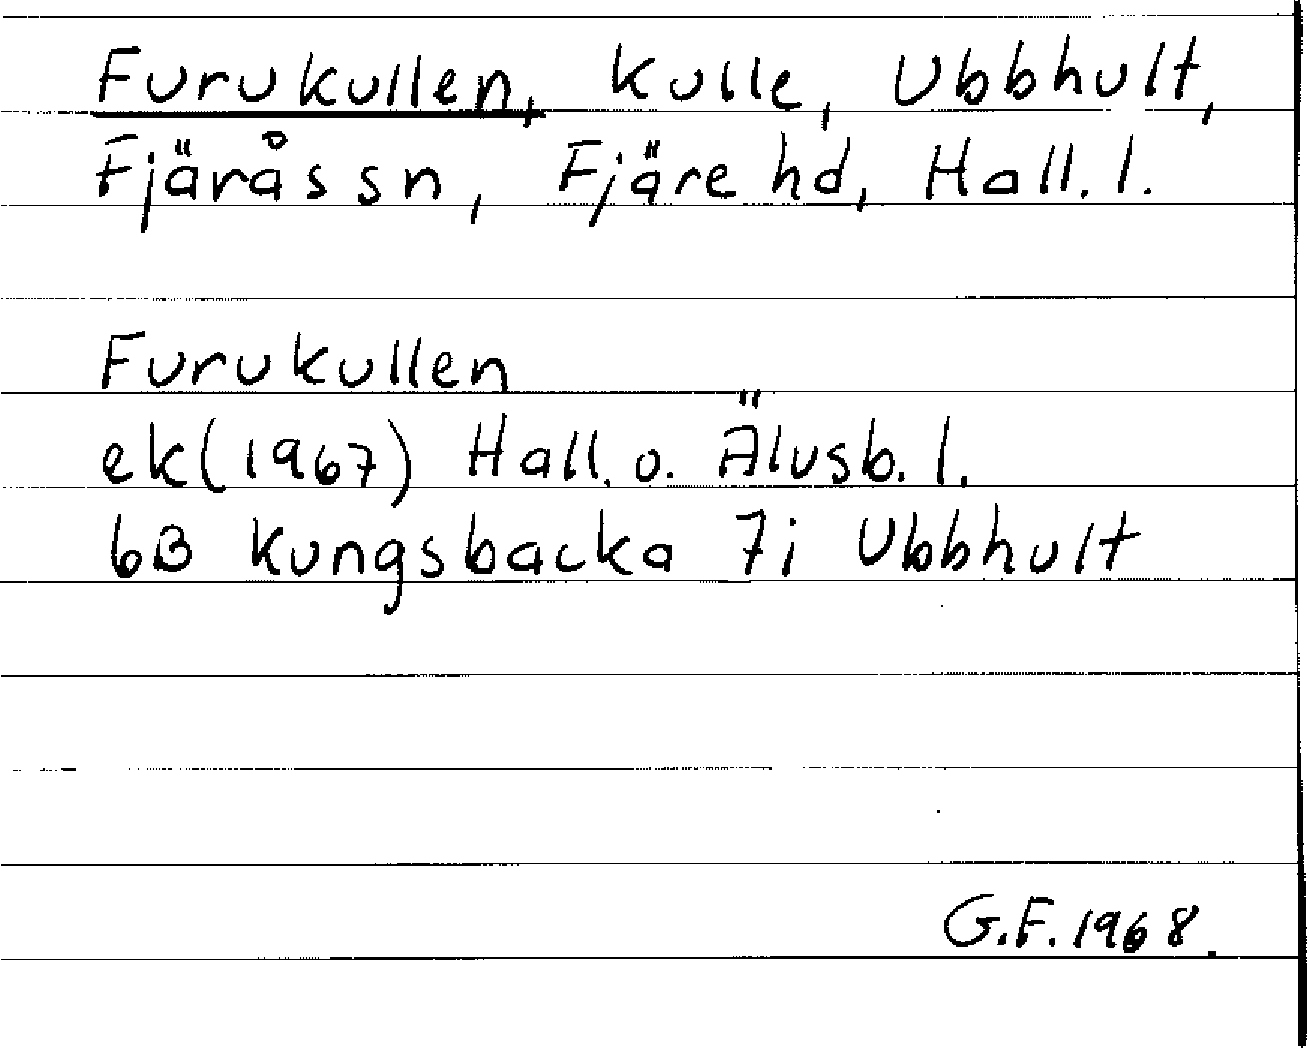 Furukullen, kulle, Ubbhult,
Fjärås sn, Fjäre hd, Hall. l.
Furukullen
ek(1967) Hall. o. Älvsb. l.
6B Kungsbacka 7i Ubbhult
G.F. 1968.